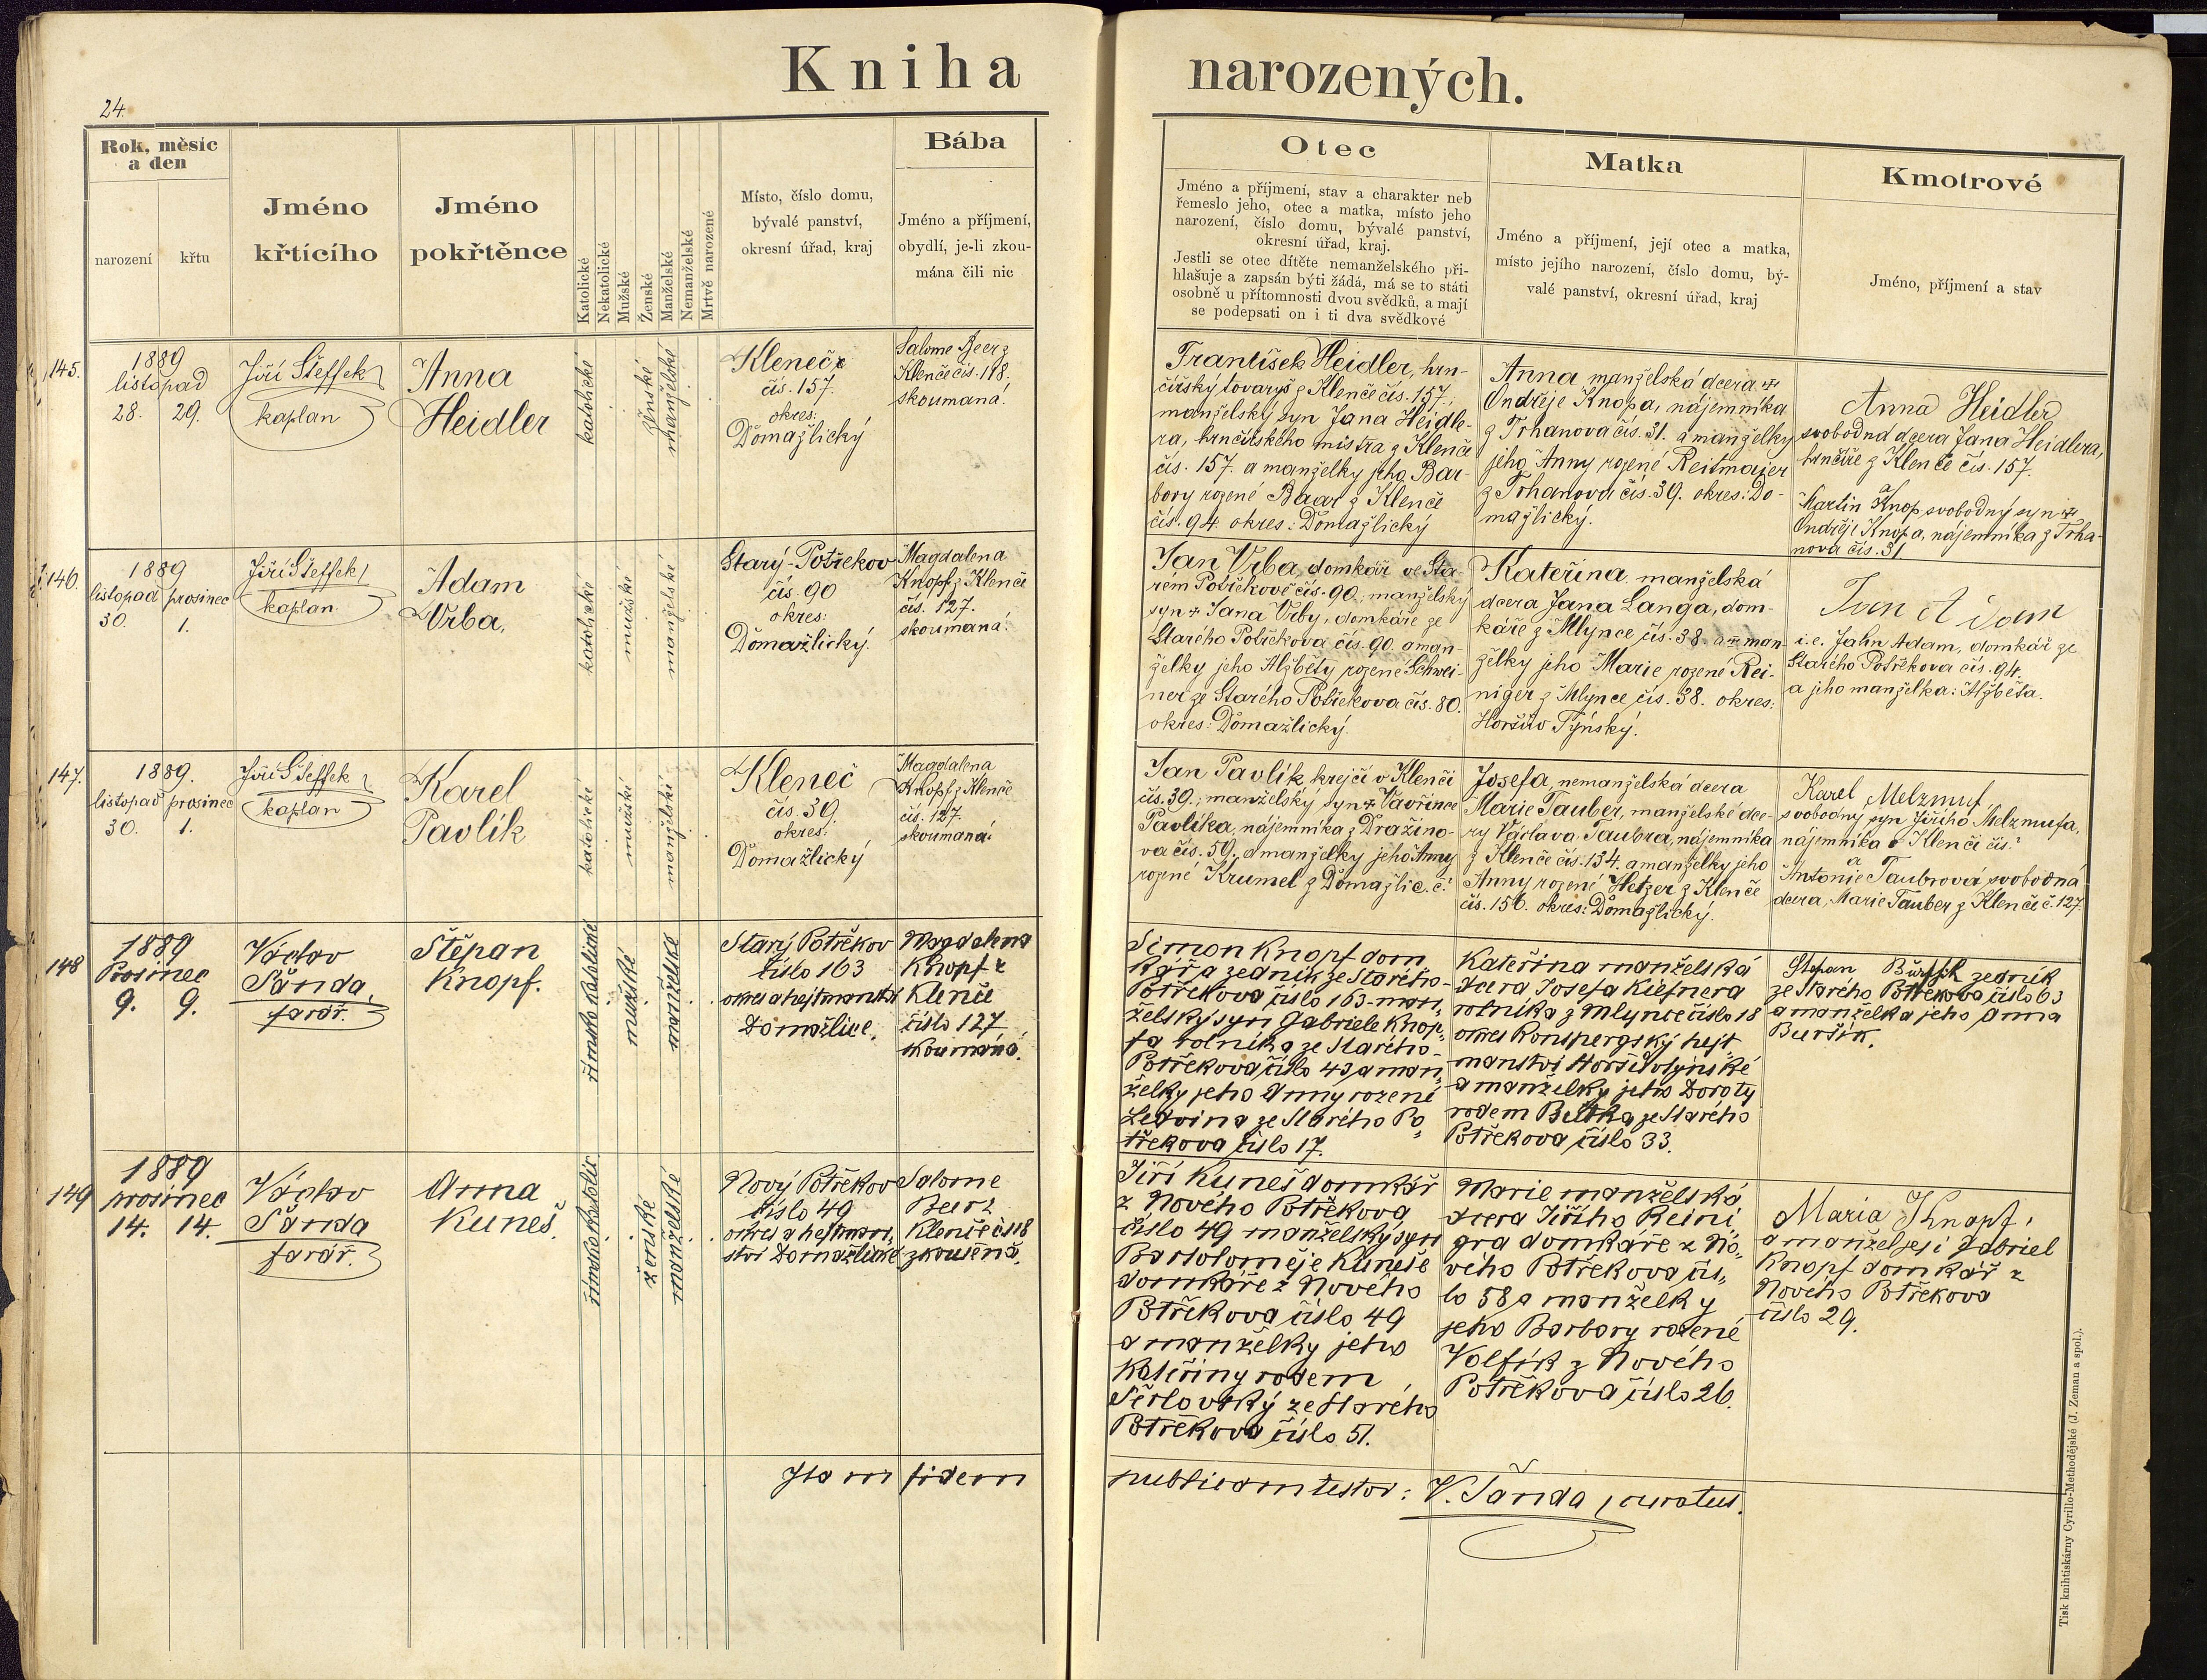 Kniha narozených.
24.
Rok, měsíc
a den
narození
křtu
Jméno
křtícího
Jméno
pokřtěnce
Katolické
Nekatolické
Mužské
Ženské
Manželské
Nemanželské
Mrtvě narozené
Místo, číslo domu,
bývalé panství,
okresní úřad, kraj
Bába
Jméno a příjmení,
obydlí, je-li zkou-
mána čili nic
Otec
Jméno a příjmení, stav a charakter neb
řemeslo jeho, otec a matka, místo jeho
narození, číslo domu, bývalé panství,
okresní úřad, kraj.
Jestli se otec dítěte nemanželského při-
hlašuje a zapsán býti žádá, má se to státi
osobně u přítomnosti dvou svědků, a mají
se podepsati on i ti dva svědkové
Matka
Jméno a příjmení, její otec a matka,
místo jejího narození, číslo domu, bý-
valé panství, okresní úřad, kraj
Kmotrové
Jméno, příjmení a stav
145.
1889
listopad
28. 29.
Jiří Šteffek
kaplan
Anna
Heidler
katolické
ženské
manželské
Kleneč
čís. 157.
okres:
Domažlický
Salome Beer z
Klenče čís. 118.
skoumaná.
František Heidler, hrn-
čířský tovaryš z Klenče čís. 157.,
manželský syn Jana Heidle-
ra, hrnčířského mistra z Klenče
čís. 157. a manželky jeho Bar-
bory rozené Baar z Klenče
čís. 94. okres: Domažlický
Anna manželská dcera
Ondřeje Knopa, nájemníka
z Trhanova čís. 31. a manželky
jeho Anny rozené Reitmajer
z Trhanova čís. 39. okres: Do-
mažlický.
Anna Heidler
svobodná dcera Jana Heidlera,
hrnčíře z Klenče čís. 157.
a
Martin Knop svobodný syn
Ondřeje Knopa, nájemníka z Trha-
nova čís. 31
146.
1889
listopad prosinec
30. 1.
Jiří Šteffek
kaplan
Adam
Vrba,
katolické
mužské
manželské
Starý-Potřekov
čís. 90
okres:
Domažlický.
Magdalena
Knopf z Klenče
čís. 127.
skoumaná.
Jan Vrba, domkář ve Sta-
rém Potřekově čís. 90., manželský
syn Jana Vrby, domkáře ze
Starého Potřekova čís. 90. a man-
želky jeho Alžběty rozené Schwei-
ner ze Starého Potřekova čís. 80.
okres: Domažlický.
Kateřina manželská
dcera Jana Langa, dom-
káře z Mlynce čís. 38. a man-
želky jeho Marie rozené Rei-
niger z Mlynce čís. 38. okres:
Horšův Týnský.
Jan Adam
i. e. Jahn Adam, domkář ze
Starého Potřekova čís. 94.
a jeho manželka: Alžběta.
147.
1889.
listopad prosinec
30. 1.
Jiří Šteffek
kaplan
Karel
Pavlík
katolické
mužské
manželské
Kleneč
čís. 39.
okres:
Domažlický
Magdalena
Knopf z Klenče
čís. 127.
skoumaná.
Jan Pavlík, krejčí v Klenči
čís. 39., manželský syn Vavřince
Pavlíka, nájemníka z Dražino-
va čís. 59. a manželky jeho Anny
rozené Krumel z Domažlic. č.?
Josefa, nemanželská dcera
Marie Tauber, manželské dce-
ry Václava Taubra, nájemníka
z Klenče čís. 134. a manželky jeho
Anny rozené Hetzer z Klenče
čís. 156. okres: Domažlický.
Karel Melzmuf,
svobodný syn Jiřího Melzmufa,
nájemníka v Klenči čís.?
a
Antonie Taubrová svobodná
dcera, Marie Tauber z Klenče č. 127.
148
1889
Prosinec
9. 9.
Václav
Šanda,
farář.
Štěpan
Knopf.
římsko katolické
mužské
manželské
Starý Potřekov
číslo 163
okres a hejtmanství
Domažlice.
Magdalena
Knopf z
Klenče
číslo 127
skoumáná.
Šimon Knopf dom
kář a zedník ze Starého-
Potřekova číslo 163- man,
želský syn Gabriele Knop,
fa rolníka ze Starého-
Potřekova číslo 43 a man,
želky jeho Anny rozené
Ledvina ze Starého Po
třekova číslo 17.
Kateřina manželská
dcera Josefa Kiefnera
rolníka z Mlynce číslo 18
okres Ronspergský hejt-
manství Horšovotýnské
a manželky jeho Doroty
rodem ze Starého
Potřekova číslo 33.
Štepan zedník
ze Starého Potřekova číslo 63
a manželka jeho Anna
Buršík.
149
1889
prosinec
14. 14.
Václav
Šanda
farář.
Anna
Kuneš.
římsko katolic
ženské
manželské
Nový Potřekov
číslo 49
okres a hejtman,
ství Domažlické
Salome
Beer z
Klenče čs 118
zkoušená.
Jiří Kuneš domkář
z Nového Potřekova
číslo 49 manželský syn
Bartoloměje Kuneše
domkáře z Nového
Potřekova číslo 49
a manželky jeho
Kateřiny rodem
ze Starého
Potřekova číslo 51.
Marie manželská
dcera Jiřího Reini
gra domkáře z No,
vého Potřekova čís,
lo 58 a manželky
jeho Barbory rozené
Volfík z Nového
Potřekova číslo 26.
Maria Knopf,
a manžel její Gabriel
Knopf domkář z
Nového Potřekova
číslo 29.
Ita in fidem publicam testor: V. Šanda, curatus.
Tisk knihtiskárny Cyrillo-Methodějské (J. Zeman a spol.).